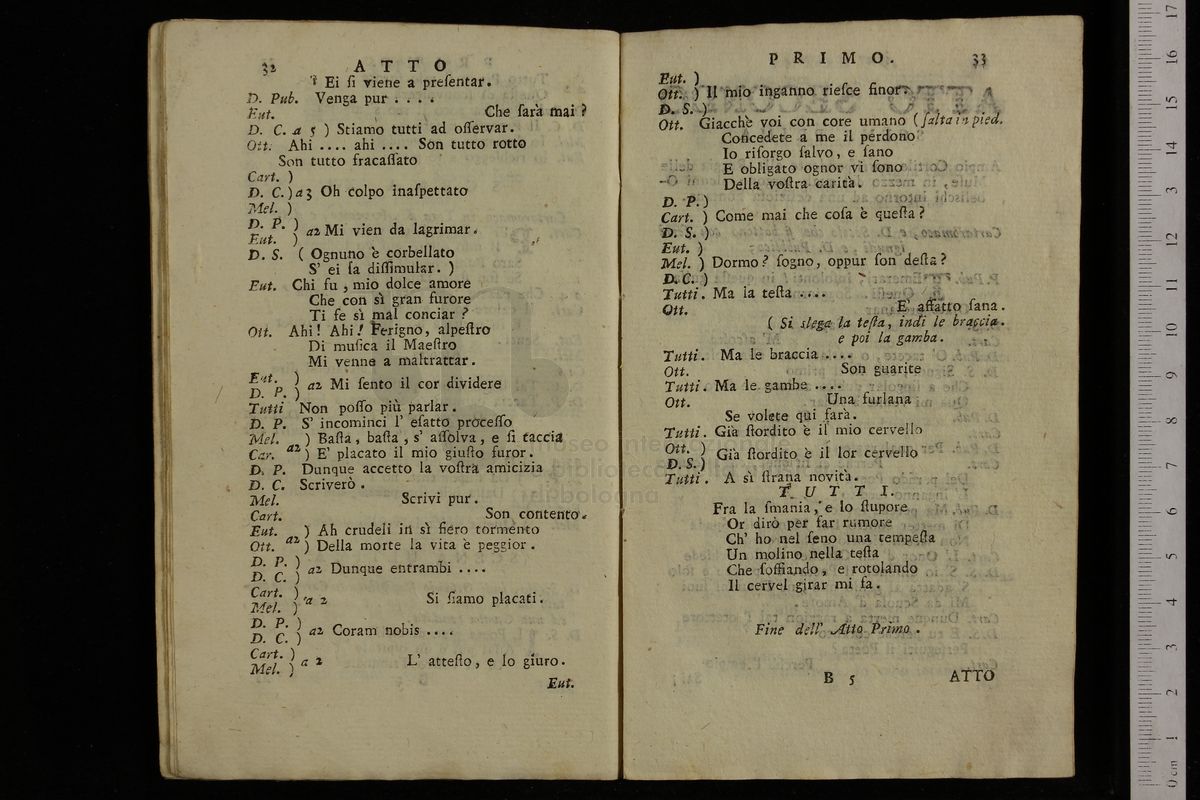 32 ATTO
Ei ſi viene a preſentar.
D. Pub. Venga pur . . . .
Eut. Che ſarà mai ?
D. C. a 5 ) Stiamo tutti ad oſſervar.
Ott. Ahi .... ahi .... Son tutto rotto
Son tutto fracaſſato
Cart. )
D. C. ) a 3 Oh colpo inaſpettato
Mel. )
D. P. )
Eut. ) a2 Mi vien da lagrimar.
D. S. ( Ognuno è corbellato
S' ei ſa diſſimular. )
Eut. Chi fu , mio dolce amore
Che con sì gran furore
Ti fe sì mal conciar ?
Ott. Ahi ! Ahi ! Ferigno, alpeſtro
Di muſica il Maeſtro
Mi venne a maltrattar.
Eut. )
D. P. ) a2 Mi ſento il cor dividere
Tutti Non poſſo più parlar .
D. P. S' incominci l' eſatto proceſſo
Mel. a2 ) Baſta , baſta , s' aſſolva , e ſi taccia
Car. ) E' placato il mio giuſto furor.
D. P. Dunque accetto la voſtra amicizia
D. C. Scriverò .
Mel. Scrivi pur.
Cart. Son contento.
Eut. a2 ) Ah crudeli in sì fiero tormento
Ott. ) Della morte la vita è peggior .
D. P. )
D. C. ) a2 Dunque entrambi ....
Cart. )
Mel. ) a 2 Si ſiamo placati.
D. P. )
D. C. ) a2 Coram nobis ....
Cart. )
Mel. ) a 2 L' atteſto, e lo giuro.
Eut.
PRIMO. 33
Eut. )
Ott. ) Il mio inganno rieſce finor.
D. S. )
Ott. Giacchè voi con core umano (ſalta in pied.
Concedete a me il perdono
Io riſorgo ſalvo, e ſano
E obligato ognor vi ſono
Della voſtra carità.
D. P. )
Cart. ) Come mai che coſa è queſta ?
D. S. )
Eut. )
Mel. ) Dormo ? ſogno, oppur ſon deſta ?
D. C. )
Tutti. Ma la teſta ....
Ott. E' affatto ſana .
( Si slega la teſta, indi le braccia.
e poi la gamba.
Tutti. Ma le braccia ....
Ott. Son guarite
Tutti. Ma le gambe ....
Ott. Una furlana
Se volete qui farà.
Tutti. Già ſtordito è il mio cervello
Ott. )
D. S. ) Già ſtordito è il lor cervello
Tutti. A sì ſtrana novità.
TUTTI.
Fra la ſmania, e lo ſtupore
Or dirò per far rumore
Ch' ho nel ſeno una tempeſta
Un molino nella teſta
Che ſoffiando, e rotolando
Il cervel girar mi fa.
Fine dell' Atto Primo .
B 5 ATTO